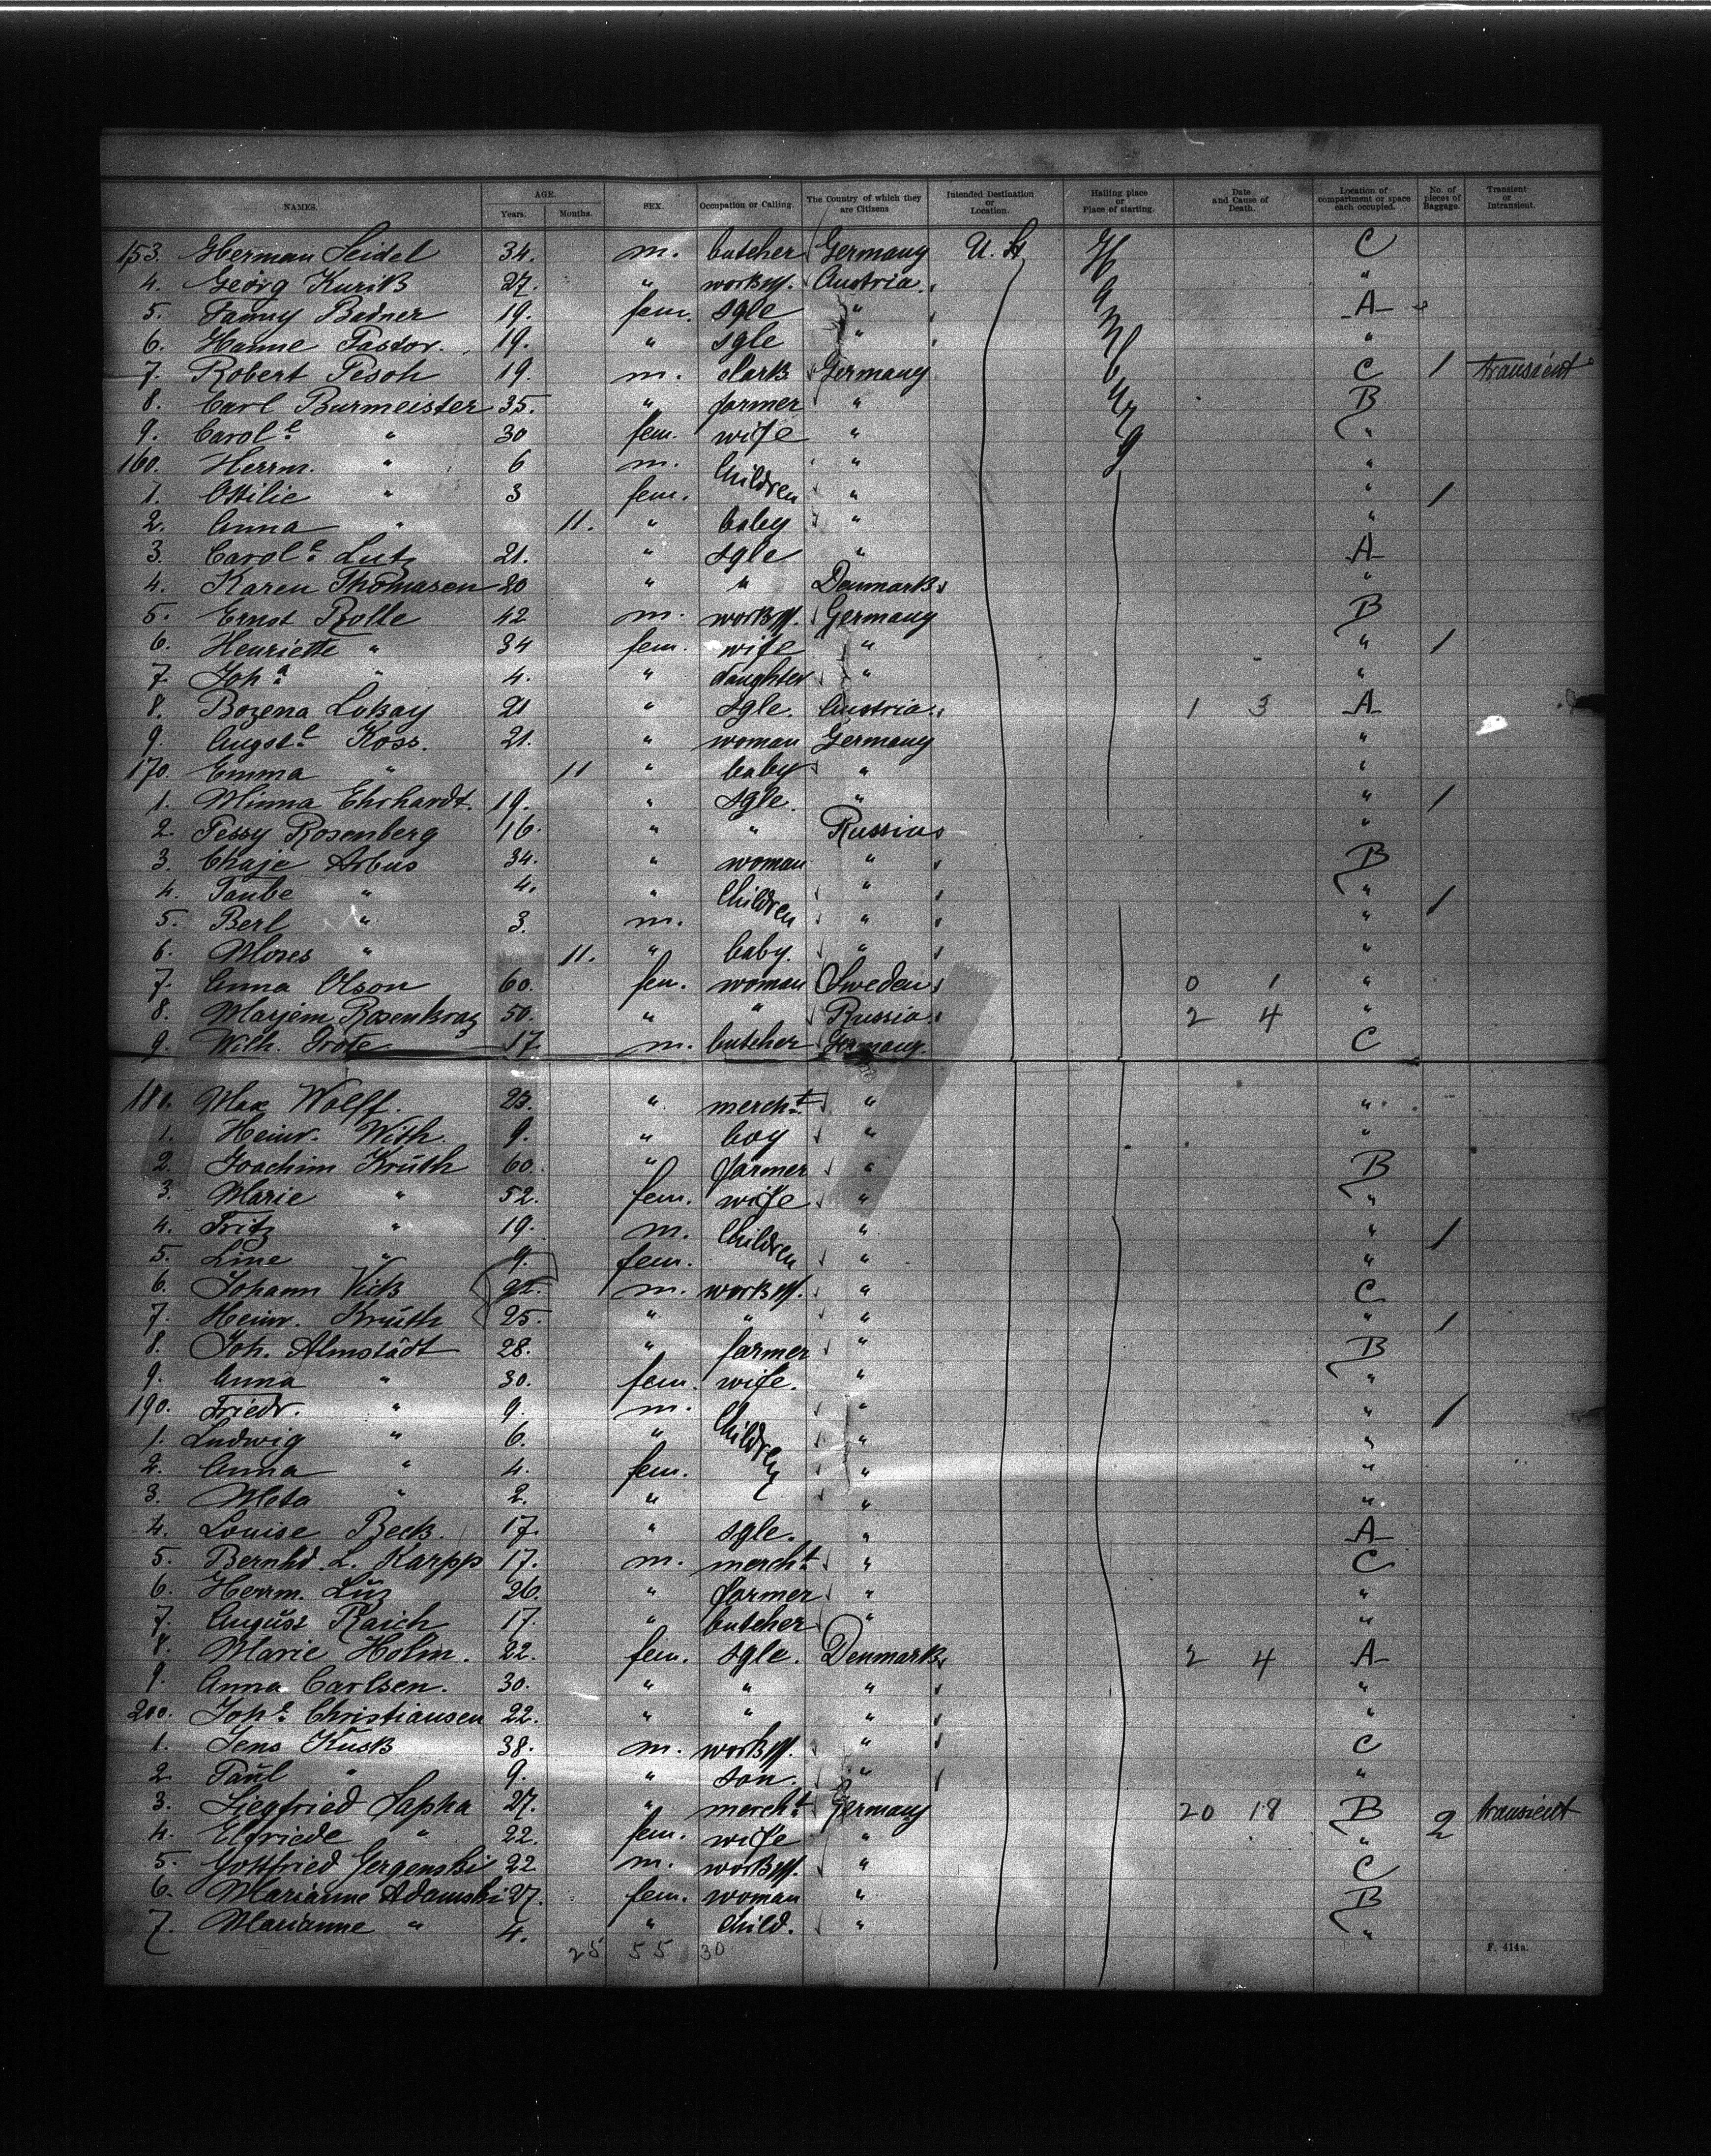 NAMES. AGE. Years. Months. SEX. Occupation or Calling. The Country of which they are Citizens Intended Destination or Location. Hailing place or Place of starting. Date and Cause of Death. Location of compartment or space each occupied. No. of pieces of Baggage. Transient or Intransient.
153. Herman Seidel 34. m. butcher Germany U. St Hamburg C
4. Georg Kurik 27. " workm. Austria "
5. Fanny Badner 19. fem. sgle " A
6. Hanne Pastor. 19. " sgle " "
7. Robert Pesoh 19. m. clark Germany C 1 transient
8. Carl Burmeister 35. " farmer " B
9. Carole " 30 fem. wife " "
160. Herrm. " 6 m. Children " "
1. Ottilie " 3 fem. " " 1
2. Anna " 11. " baby " "
3. Carole Lutz 21. " sgle " A
4. Karen Thomasen 20 " " Denmark "
5. Ernst Rolle 42 m. workm. Germany B
6. Henriette " 34 fem. wife " " 1
7. Joha " 4. " daughter " "
8. Bozena Lokay 21 " sgle. Austria. 1 3 A
9. Augste Koss. 21. " woman Germany "
170. Emma " 11 " baby " "
1. Minna Ehrhardt. 19. " sgle. " " 1
2. Pessy Rosenberg 16. " " Russia "
3. Chaje Arbus 34. " woman " B
4. Taube " 4. " Children " " 1
5. Berl " 3. m. " "
6. Moses " 11. " baby. " "
7. Anna Olson 60. fem. woman Sweden 0 1 "
8. Marjem Rosenkraz 50. " " Russia. 2 4 "
9. Wilh. Grote 17 m. butcher Germany. C
180. Max Wolff. 23. " mercht " "
1. Heinr. With. 9. " boy " "
2. Joachim Krüth 60. " farmer " B
3. Marie " 52. fem. wife " "
4. Fritz " 19. m. Children " " 1
5. Line " 9. fem. " "
6. Johann Vick 22. m. workm. " C
7. Heinr. Krüth 25. " " " " 1
8. Joh. Almstädt 28. " farmer " B
9. Anna " 30. fem. wife. " "
190. Friedr. " 9. m. Children " " 1
1. Ludwig " 6. " " "
2. Anna " 4. fem. " "
3. Meta " 2. " " "
4. Louise Beck. 17. " sgle. " A
5. Bernhd. L. Karpp 17. m. mercht " C
6. Herrm. Luz 26. " farmer " "
7. August Raich 17. " butcher " "
8. Marie Holm. 22. fem. sgle. Denmark 2 4 A
9. Anna Carlsen. 30. " " " "
200. Johe Christiansen 22. " " " "
1. Jens Kusk 38. m. workm. " C
2 Paul " 9. " son. " "
3. Siegfried Sapha 27. " mercht Germany 20 18 B 2 transient
4. Elfriede " 22. fem. wife " "
5. Gottfried Gergenski 22 m. workm. " C
6. Marianne Adamski 27. fem. woman " B
7. Marianne " 4. " child. " "
25 55 30
F. 414a.